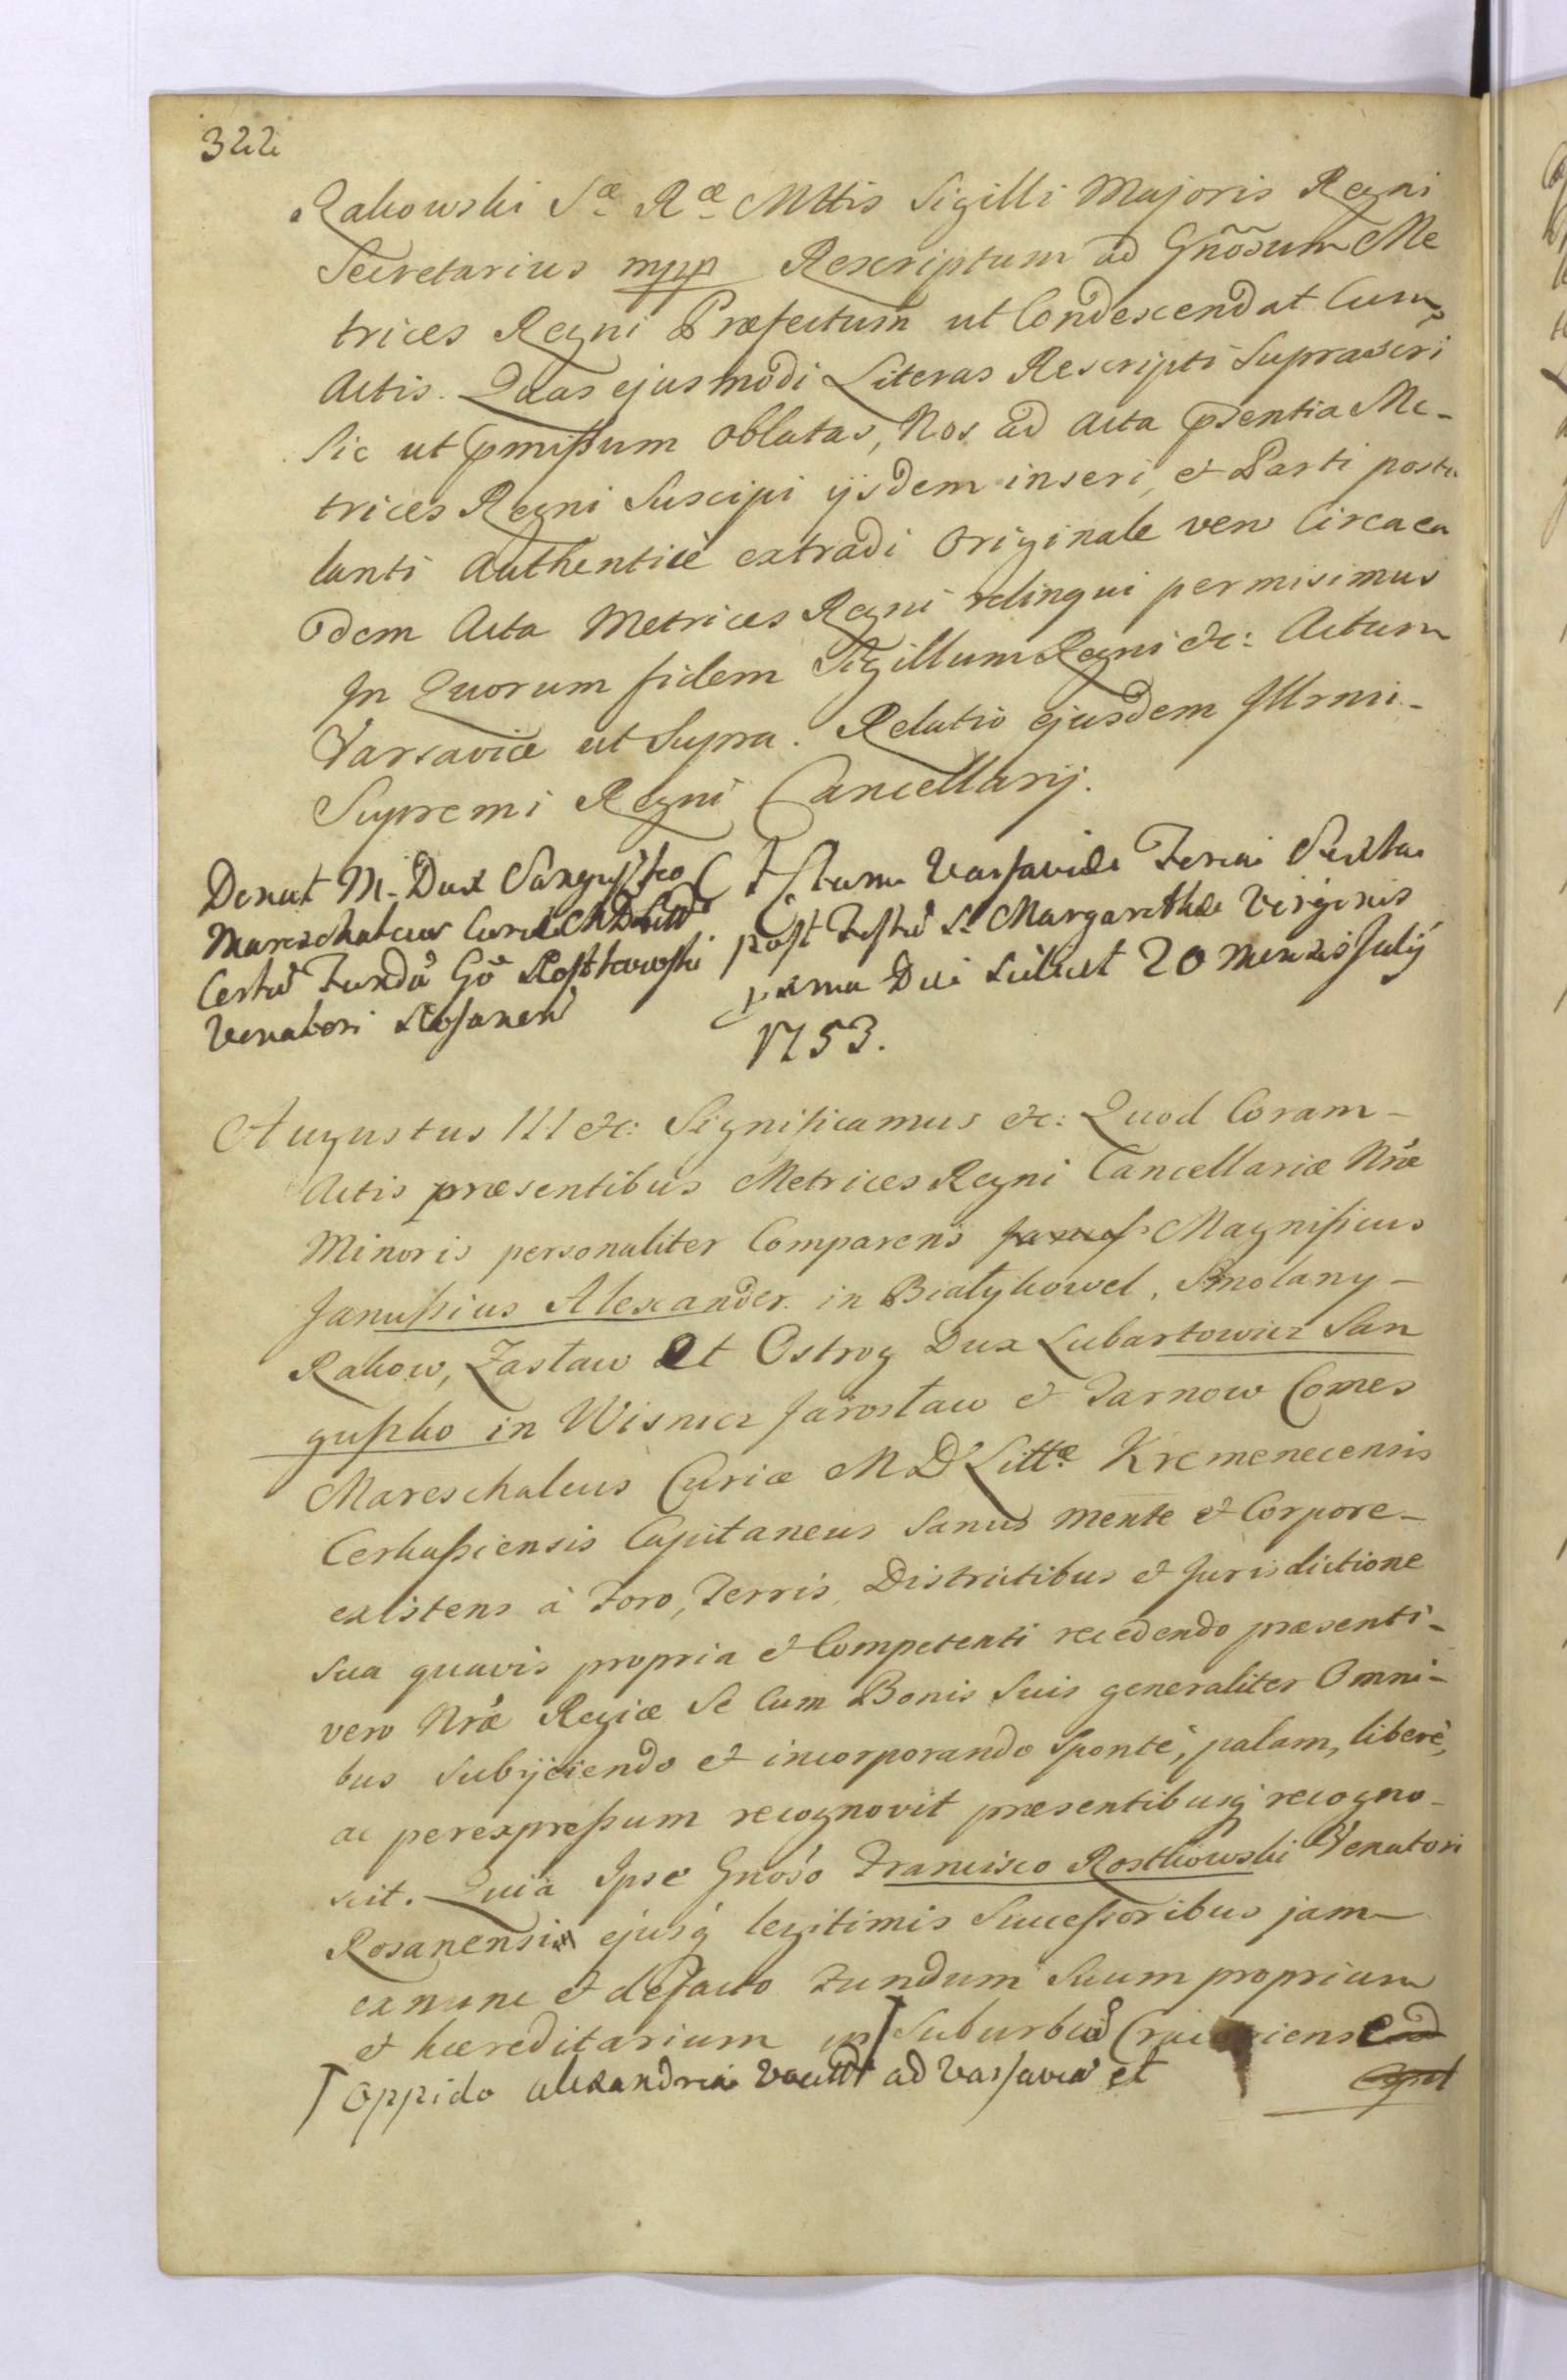 322
Rakowski Sæ Ræ Mttis Sigilli Majoris Regni
Secretarius mpp Rescriptum ad Gñosum Me
trices Regni Præfectum ut Condescendat Cum
Actis. Quas ejusmodi Literas Rescripti Suprascri
Sic ut pmißum oblatas, Nos ad Acta pñentia Me-
trices Regni Suscipi ijsdem inseri, et Parti postu
lanti Authenticè extradi Originale vero Circa ea
dem Acta Metrices Regni relinqui permisimus
In Quorum fidem Sigillum Regni &c: Actum
Varsaviæ ut Supra. Relatio ejusdem Illrmi-
Supremi Regni Cancellarij.
Donat M. Dux Sanguszko
Mareschalcus Curiæ MDLittæ
Certũ Fundũ Gõ Rostkowski
Venatori Rosanen
Actum Varsaviæ Feria Sexta
post Festũ S. Margarethæ Virginis
prma Die Scilicet 20 Mensis Julij
1753.
Augustus III &c: Significamus &c: Quod Coram-
Actis præsentibus Metrices Regni Cancellariæ Nræ
Minoris personaliter Comparens Magnificus
Janußius Alexander in Białykowel, Smolany-
Rakow, Zasław et Ostrog Dux Lubartowicz San
gußko in Wisnicz Jarosław & Tarnow Comes
Mareschalcus Curiæ M D Littæ Kremenecensis
Cerkaßiensis Capitaneus Sanus mente & Corpore-
existens à Foro, Terris, Districtibus & Jurisdictione
sua quavis propria & Competenti recedendo præsenti-
vero Nræ Regiæ Se Cum Bonis Suis generaliter Omni-
bus Subijciendo & incorporando Spontè, palam, liberè,
ac perexpreßum recognovit præsentibusq recogno-
scit. Quia Ipse Gnoso Francisco Rostkowski Venatori
Rosanensi ejusq legitimis Succeßoribus jam-
exnunc & defacto Fundum Suum proprium
& hæreditarium in Suburbio
Oppido Alexandria ad Varsaviã et